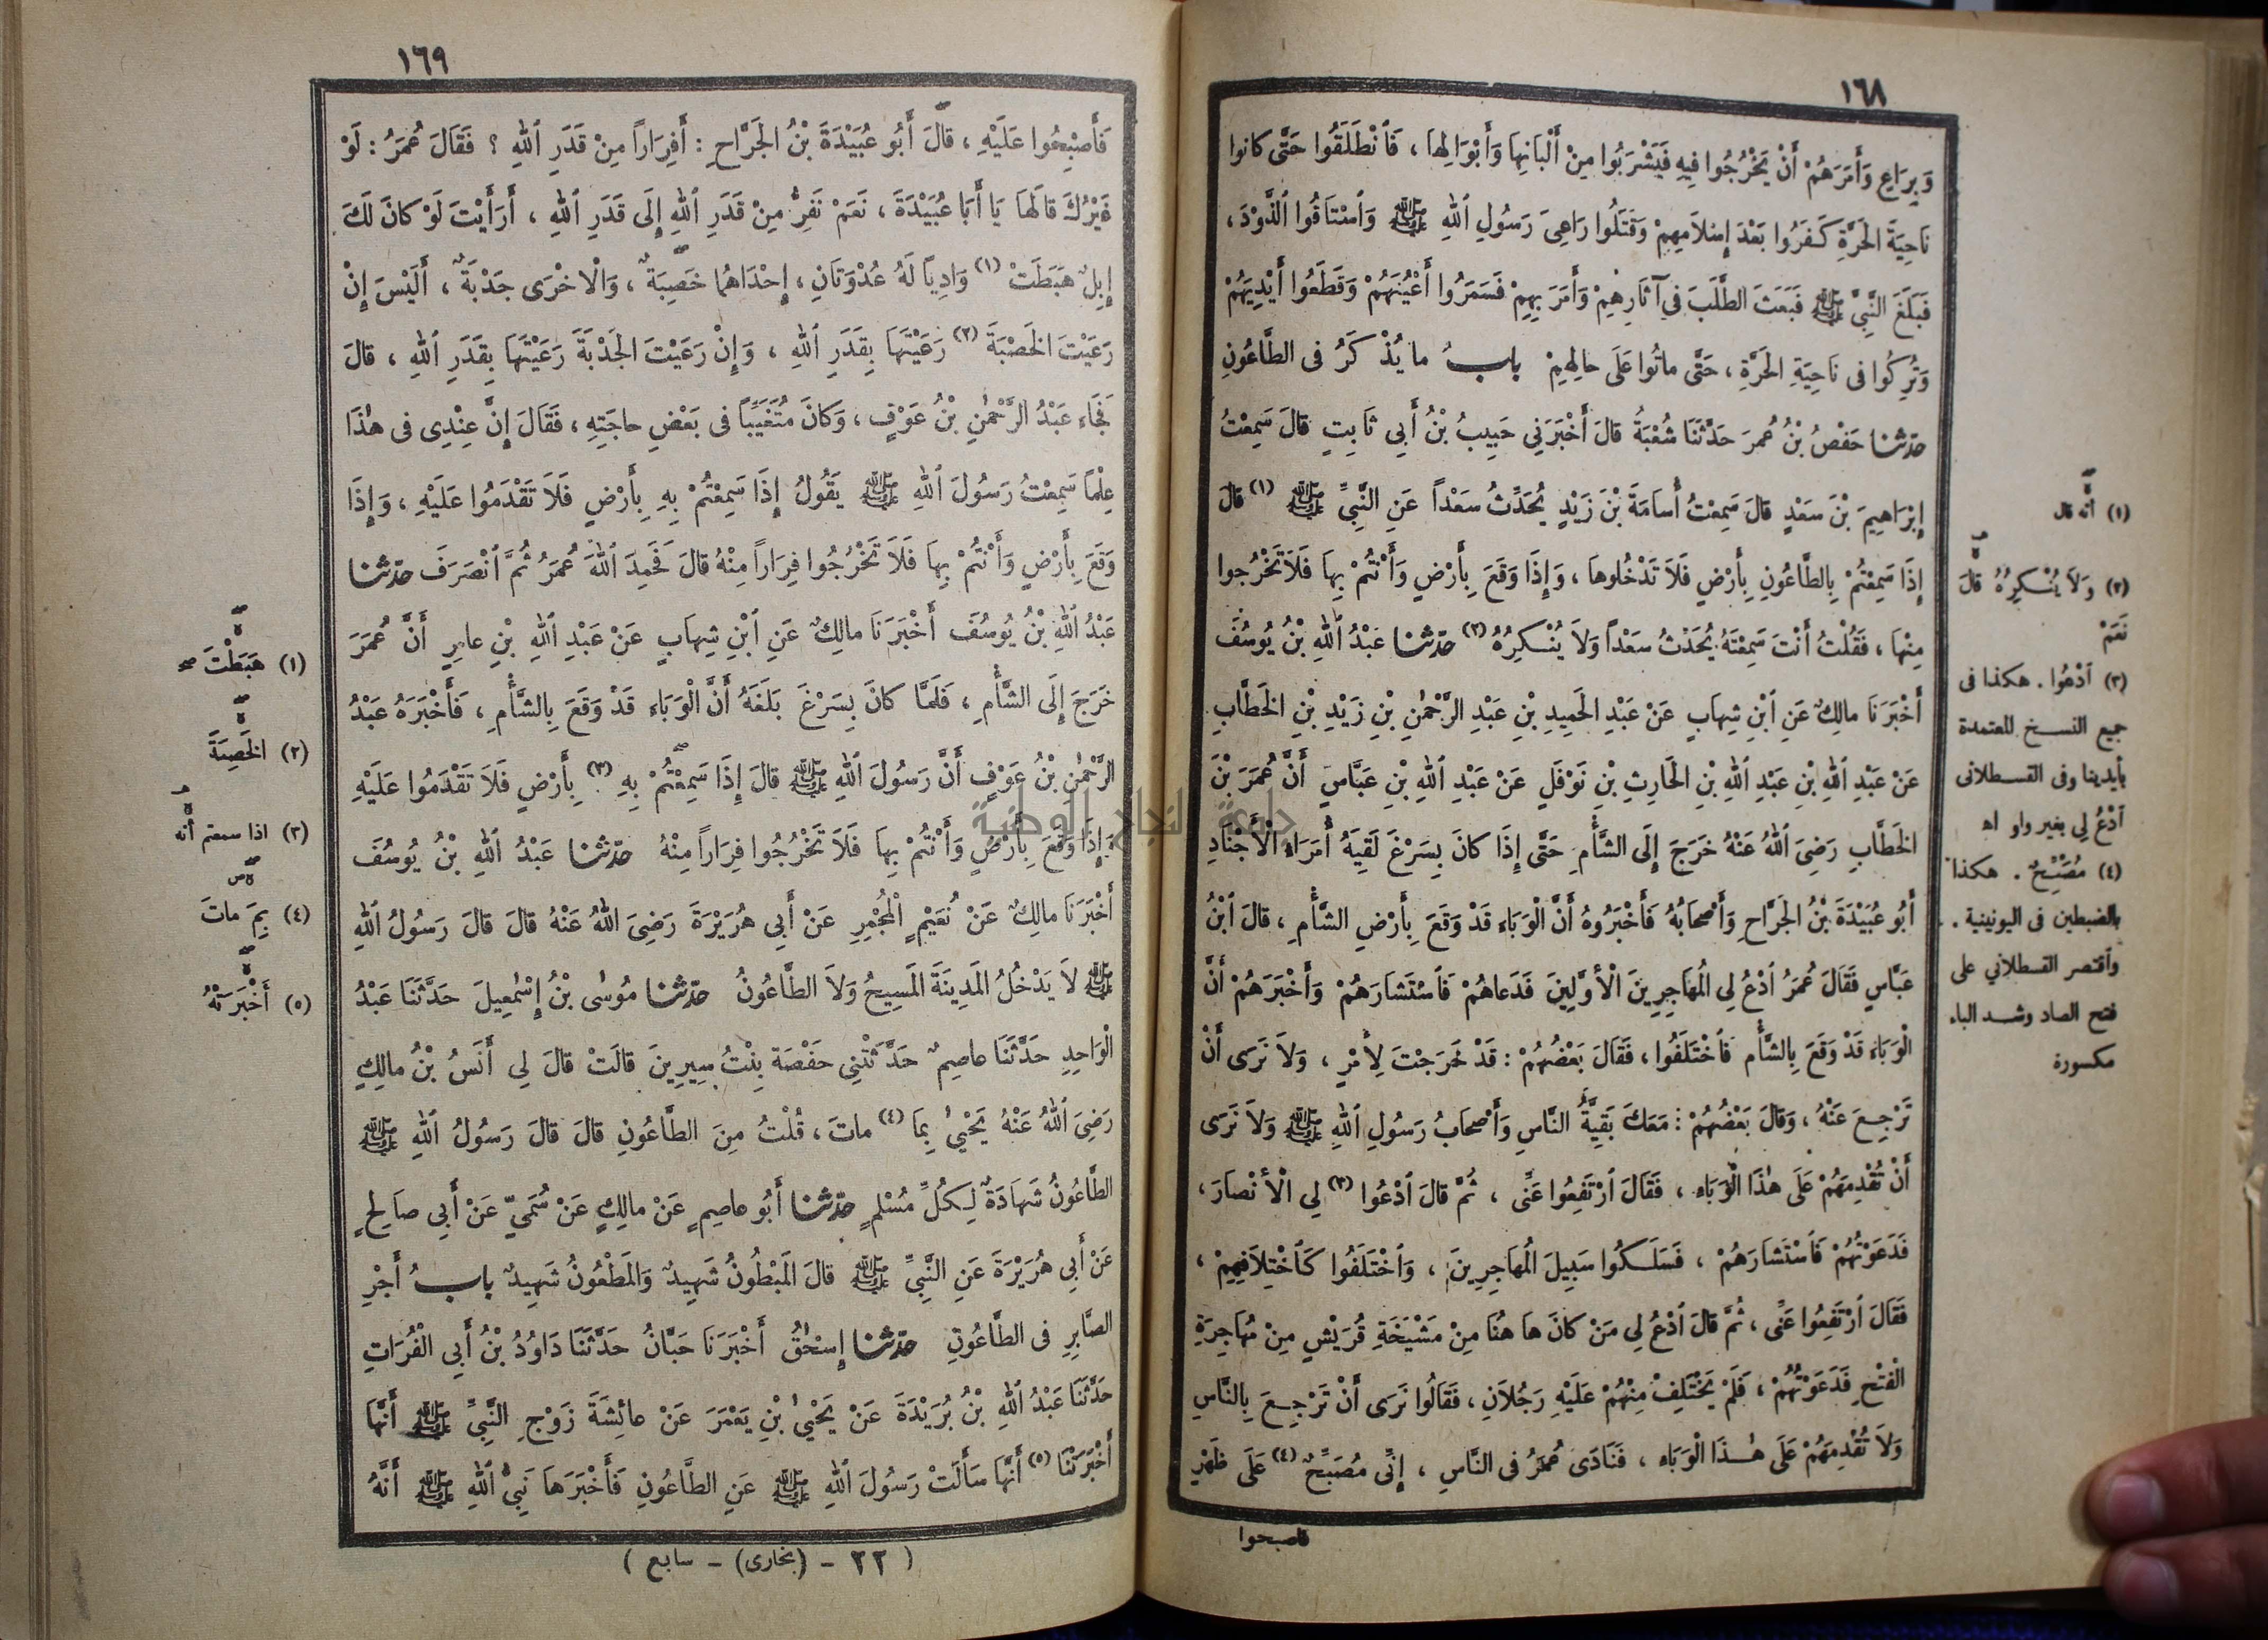 ١٦٨
وَبِرَاعٍ وَأَمَرَهُمْ أَنْ يَخْرُجُوا فِيهِ فَيَشْرَبُوا مِنْ أَلْبَانِهَا وَأَبْوَالِهَا ، فَٱنْطَلَقُوا حَتَّى كانوا
نَاحِيَةَ الحَرَّةِ كَفَرُوا بَعْدَ إِسْلاَمِهِمْ وَقَتَلُوا رَاعِىَ رَسُولِ ٱللهِ ﷺ وَٱسْتَاقُوا ٱلذَّوْدَ ،
فَبَلَغَ النَّبِيَّ ﷺ فَبَعَثَ الطَّلَبَ فِي آثَارِهِمْ وَأَمَرَ بِهِمْ فَسَمَرُوا أَعْيُنَهُمْ وَقَطَعُوا أَيْدِيَهُمْ
وَتُرِكُوا فى نَاحِيَةِ الحَرَّةِ ، حَتَّى ماتُوا عَلَى حالِهِمْ بابُ ما يُذْكَرُ فى الطَّاعُونِ
حدّثنا حَفْصُ بْنُ عُمَرَ حَدَّثَنَا شُعْبَةُ قالَ أَخْبَرَنِي حَبِيبُ بْنُ أَبِي ثَابِتٍ قالَ سَمِعْتُ
إِبْرَاهِيمَ بْنَ سَعْدٍ قالَ سَمِعْتُ أُسَامَةَ بْنَ زَيْدٍ يُحَدِّثُ سَعْداً عَنِ النَّبِيِّ ﷺ (١) قالَ
إِذَا سَمِعْتُمْ بِالطَّاعُونِ بِأَرْضٍ فَلاَ تَدْخُلُوهَا ، وَإِذَا وَقَعَ بِأَرْضٍ وَأَنْتُمْ بِهَا فَلاَ تَخْرُجوا
مِنْهَا ، فَقُلْتُ أَنْتَ سَمِعْتَهُ يُحَدِّثُ سَعْداً وَلاَ يُنْكِرُهُ (٢) حدّثنا عَبْدُ ٱللهِ بْنُ يُوسُفَ
أَخْبَرَنَا مالِكٌ عَنِ ٱبْنِ شِهَابٍ عَنْ عَبْدِ الحَمِيدِ بْنِ عَبْدِ الرَّحْمٰنِ بْنِ زَيْدِ بْنِ الخَطَّابِ
عَنْ عَبْدِ ٱللهِ بْنِ عَبْدِ ٱللهِ بْنِ الحَارِثِ بْنِ نَوْفَلٍ عَنْ عَبْدِ ٱللهِ بْنِ عَبَّاسٍ أَنَّ عُمَرَ بْنَ
الخَطَّابِ رَضِىَ ٱللهُ عَنْهُ خَرَجَ إِلَى الشَّأْمِ حَتَّى إِذَا كانَ بِسَرْغَ لَقِيَهُ أُمَرَاءُ الْأَجْنَادِ
أَبُو عُبَيْدَةَ بْنُ الجَرَّاحِ وَأَصْحَابُهُ فَأَخْبَرُوهُ أَنَّ الْوَبَاءَ قَدْ وَقَعَ بِأَرْضِ الشَّأْمِ ، قالَ ٱبْنُ
عَبَّاسٍ فَقَالَ عُمَرُ ٱدْعُ لِى المُهَاجِرِينَ الْأَوَّلِينَ فَدَعاهُمْ فَٱسْتَشَارَهُمْ وَأَخْبَرَهُمْ أَنَّ
الْوَبَاءَ قَدْ وَقَعَ بِالشَّأْمِ فَٱخْتَلَفُوا ، فَقَالَ بَعْضُهُمْ : قَدْ خَرَجْتَ لِأَمْرٍ ، وَلاَ نَرَى أَنْ
تَرْجِعَ عَنْهُ ، وَقالَ بَعْضُهُمْ : مَعَكَ بَقِيَّةُ النَّاسِ وَأَصْحَابُ رَسُولِ ٱللهِ ﷺ وَلاَ نَرَى
أَنْ تُقْدِمَهُمْ عَلَى هٰذَا الْوَبَاءِ ، فَقَالَ ٱرْتَفِعُوا عَنِّى ، ثُمَّ قالَ ٱدْعُوا (٣) لِي الْأَنْصَارَ ،
فَدَعَوْتُهُمْ فَٱسْتَشَارَهُمْ ، فَسَلَكُوا سَبِيلَ المُهَاجِرِينَ ، وَٱخْتَلَفُوا كَٱخْتِلاَفِهِمْ ،
فَقَالَ ٱرْتَفِعُوا عَنِّى ، ثُمَّ قالَ ٱدْعُ لِى مَنْ كانَ هَا هُنَا مِنْ مَشْيَخَةِ قُرَيْشٍ مِنْ مُهَاجِرَةِ
الْفَتْحِ فَدَعَوْتُهُمْ ، فَلَمْ يَخْتَلِفْ مِنْهُمْ عَلَيْهِ رَجُلاَنِ ، فَقَالُوا نَرَى أَنْ تَرْجِعَ بِالنَّاسِ
وَلاَ تُقْدِمَهُمْ عَلَى هٰذَا الْوَبَاءِ ، فَنَادَى عُمَرُ فى النَّاسِ ، إِنِّى مُصَبِّحٌ (٤) عَلَى ظَهْرٍ
فاصبحوا
(١) أنه قال
(٢) وَلاَ يُنْكِرُهُ قالَ
نَعَمْ
(٣) ٱدْعُوا . هكذا فى
جميع النسخ المعتمدة
بأيدينا وفى القسطلانى
ٱدْعُ لِي بغير واو اه
(٤) مُصَبِّحٌ . هكذا
بالضبطين فى اليونينية .
وٱقتصر القسطلاني على
فتح الصاد وشد الباء
مكسورة
١٦٩
فَأَصْبِحُوا عَلَيْهِ ، قالَ أَبُو عُبَيْدَةَ بْنُ الجَرَّاحِ : أَفِرَاراً مِنْ قَدَرِ ٱللهِ ؟ فَقَالَ عُمَرُ : لَوْ
غَيْرُكَ قالَهَا يَا أَبَا عُبَيْدَةَ ، نَعَمْ نَفِرُّ مِنْ قَدَرِ ٱللهِ إِلَى قَدَرِ ٱللهِ ، أَرَأَيْتَ لَوْ كانَ لَكَ
إِبِلٌ هَبَطَتْ (١) وَادِياً لَهُ عُدْوَتَانِ ، إِحْدَاهُمَا خَصِبَةٌ ، وَالْاخْرَى جَدْبَةٌ ، أَلَيْسَ إِنْ
رَعَيْتَ الخَصْبَةَ (٢) رَعَيْتَهَا بِقَدَرِ ٱللهِ ، وَإِنْ رَعَيْتَ الجَدْبَةَ رَعَيْتَهَا بِقَدَرِ ٱللهِ ، قالَ
فَجَاءَ عَبْدُ الرَّحْمٰنِ بْنُ عَوْفٍ ، وَكانَ مُتَغَيِّباً فى بَعْضِ حاجَتِهِ ، فَقَالَ إِنَّ عِنْدِى فى هٰذَا
عِلْماً سَمِعْتُ رَسُولَ ٱللهِ ﷺ يَقُولُ إِذَا سَمِعْتُمْ بِهِ بِأَرْضٍ فَلاَ تَقْدَمُوا عَلَيْهِ ، وَإِذَا
وَقَعَ بِأَرْضٍ وَأَنْتُمْ بِهَا فَلاَ تَخْرُجُوا فِرَاراً مِنْهُ قالَ فَحَمِدَ ٱللهَ عُمَرُ ثُمَّ ٱنْصَرَفَ حدّثنا
عَبْدُ ٱللهِ بْنُ يُوسُفَ أَخْبَرَنَا مالِكٌ عَنِ ٱبْنِ شِهَابٍ عَنْ عَبْدِ ٱللهِ بْنِ عامِرٍ أَنَّ عُمَرَ
خَرَجَ إِلَى الشَّأْمِ ، فَلَمَّا كانَ بِسَرْغَ بَلَغَهُ أَنَّ الْوَبَاءَ قَدْ وَقَعَ بِالشَّأْمِ ، فَأَخْبَرَهُ عَبْدُ
الرَّحْمٰنِ بْنُ عَوْفٍ أَنَّ رَسُولَ ٱللهِ ﷺ قالَ إِذَا سَمِعْتُمْ بِهِ (٣) بِأَرْضٍ فَلاَ تَقْدَمُوا عَلَيْهِ
وَإِذَا وَقَعَ بِأَرْضٍ وَأَنْتُمْ بِهَا فَلاَ تَخْرُجُوا فِرَاراً مِنْهُ حدّثنا عَبْدُ ٱللهِ بْنُ يُوسُفَ
أَخْبَرَنَا مالِكٌ عَنْ نُعَيْمٍ الْمُجْمِرِ عَنْ أَبِى هُرَيْرَةَ رَضِىَ اللهُ عَنْهُ قالَ قالَ رَسُولُ ٱللهِ
ﷺ لاَ يَدْخُلُ المَدِينَةَ المَسِيحُ وَلاَ الطَّاعُونُ حدّثنا مُوسٰى بْنُ إِسْمٰعِيلَ حَدَّثَنَا عَبْدُ
الْوَاحِدِ حَدَّثَنَا عاصِمٌ حَدَّثَتْنِى حَفْصَة بِنْتُ سِيرِينَ قالَتْ قالَ لِى أَنَسُ بْنُ مالِكٍ
رَضِىَ ٱللهُ عَنْهُ يَحْيٰى بِمَا (٤) ماتَ ، قُلْتُ مِنَ الطَّاعُونِ قالَ قالَ رَسُولُ ٱللهِ ﷺ
الطَّاعُونُ شَهَادَةٌ لِكُلِّ مُسْلِمٍ حدّثنا أَبُو عاصِمٍ عَنْ مالِكٍ عَنْ سُمَىٍّ عَنْ أَبِى صَالِحٍ
عَنْ أَبِى هُرَيْرَةَ عَنِ النَّبِيِّ ﷺ قالَ المَبْطُونُ شَهِيدٌ وَالمَطْعُونُ شَهِيدٌ بابُ أَجْرِ
الصَّابِرِ فى الطَّاعُونِ حدّثنا إِسْحٰقُ أَخْبَرَنَا حَبَّانُ حَدَّثَنَا دَاوُدُ بْنُ أَبِى الْفُرَاتِ
حَدَّثَنَا عَبْدُ ٱللهِ بْنُ بُرَيْدَةَ عَنْ يَحْيٰى بْنِ يَعْمَرَ عَنْ عائِشَةَ زَوْجِ النَّبِيِّ ﷺ أَنَّهَا
أَخْبَرَتْنَا (٥) أَنَّهَا سَأَلَتْ رَسُولَ ٱللهِ ﷺ عَنِ الطَّاعُونِ فَأَخْبَرَهَا نَبِىُّ ٱللهِ ﷺ أَنَّهُ
( ٢٢ - (بخارى) - سابع )
(١) هَبَطْتَ
(٢) الخَصِبَةَ
(٣) اذا سمعتم أنه
(٤) بِمَ ماتَ
(٥) أَخْبَرَتْهُ
جامعة النجاح الوطنية